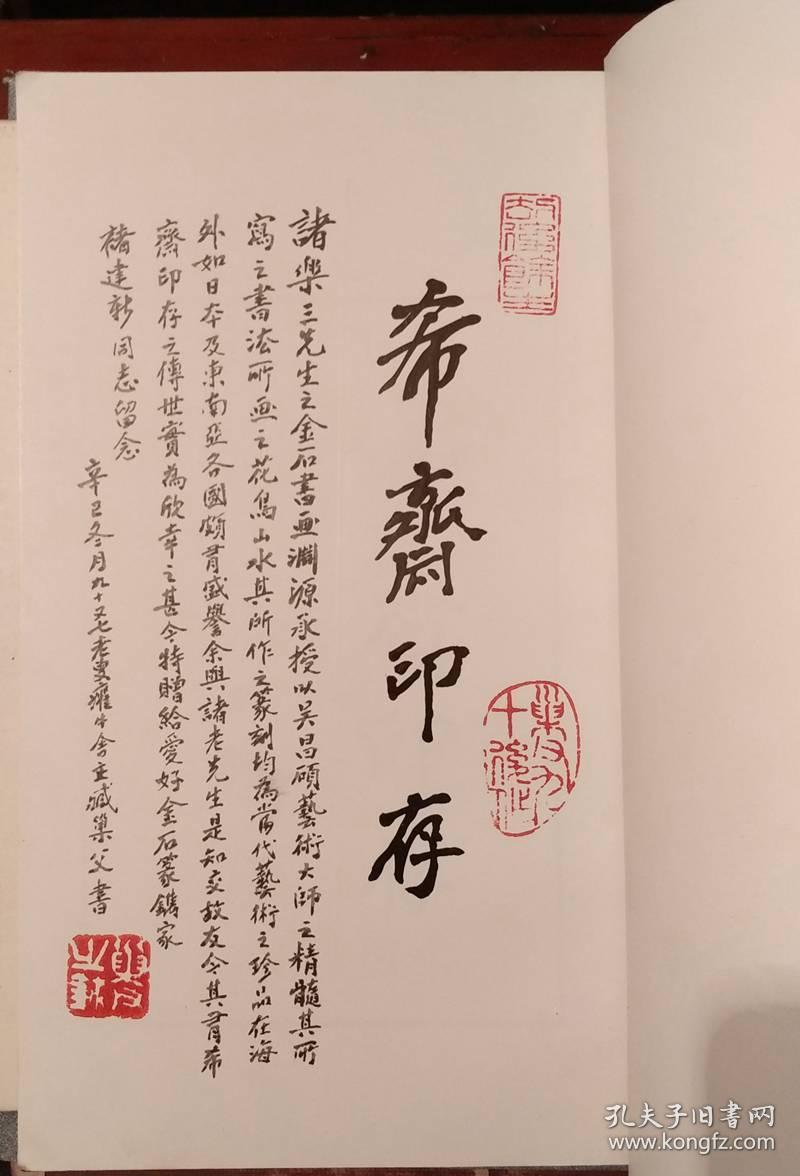 希齋印存
諸樂三先生之金石書画淵源承授以吴昌碩藝術大師之精髓其所
寫之書法所画之花鳥山水其所作之篆刻均為當代藝術之珍品在海
外如日本及東南亞各國頗有盛譽余與諸老先生是知交故友今其有希
齋印存之傳世實為欣幸之甚今特贈給愛好金石篆鐫家
褚建新同志留念
辛巳冬月九十又七老叟癯牛舍主臧巢父書
孔夫子旧书网
www.kongfz.com